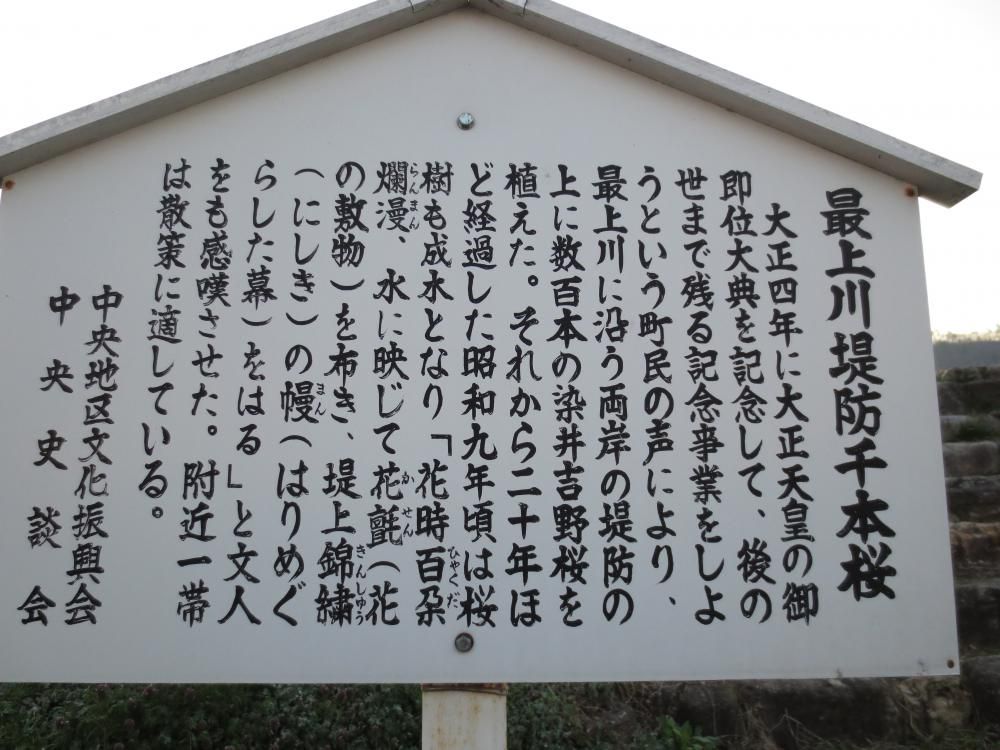 最上川堤防千本桜
大正四年に大正天皇の御
即位大典を記念して、後の
世まで残る記念事業をしよ
うという町民の声により、
最上川に沿う両岸の堤防の
上に数百本の染井吉野桜を
植えた。それから二十年ほ
ど経過した昭和九年頃は桜
樹も成水となり「花時百朶
ひゃくだ
爛漫、水に映じて花氈(花
らんまん
かせん
の敷物)を布き、堤上錦繍
きんしゅう
(にしき)の幔(はりめぐ
まん
らした幕)をはる」と文人
をも感嘆させた。附近一帯
は散策に適している。
中央地区文化振興会
中央史談会